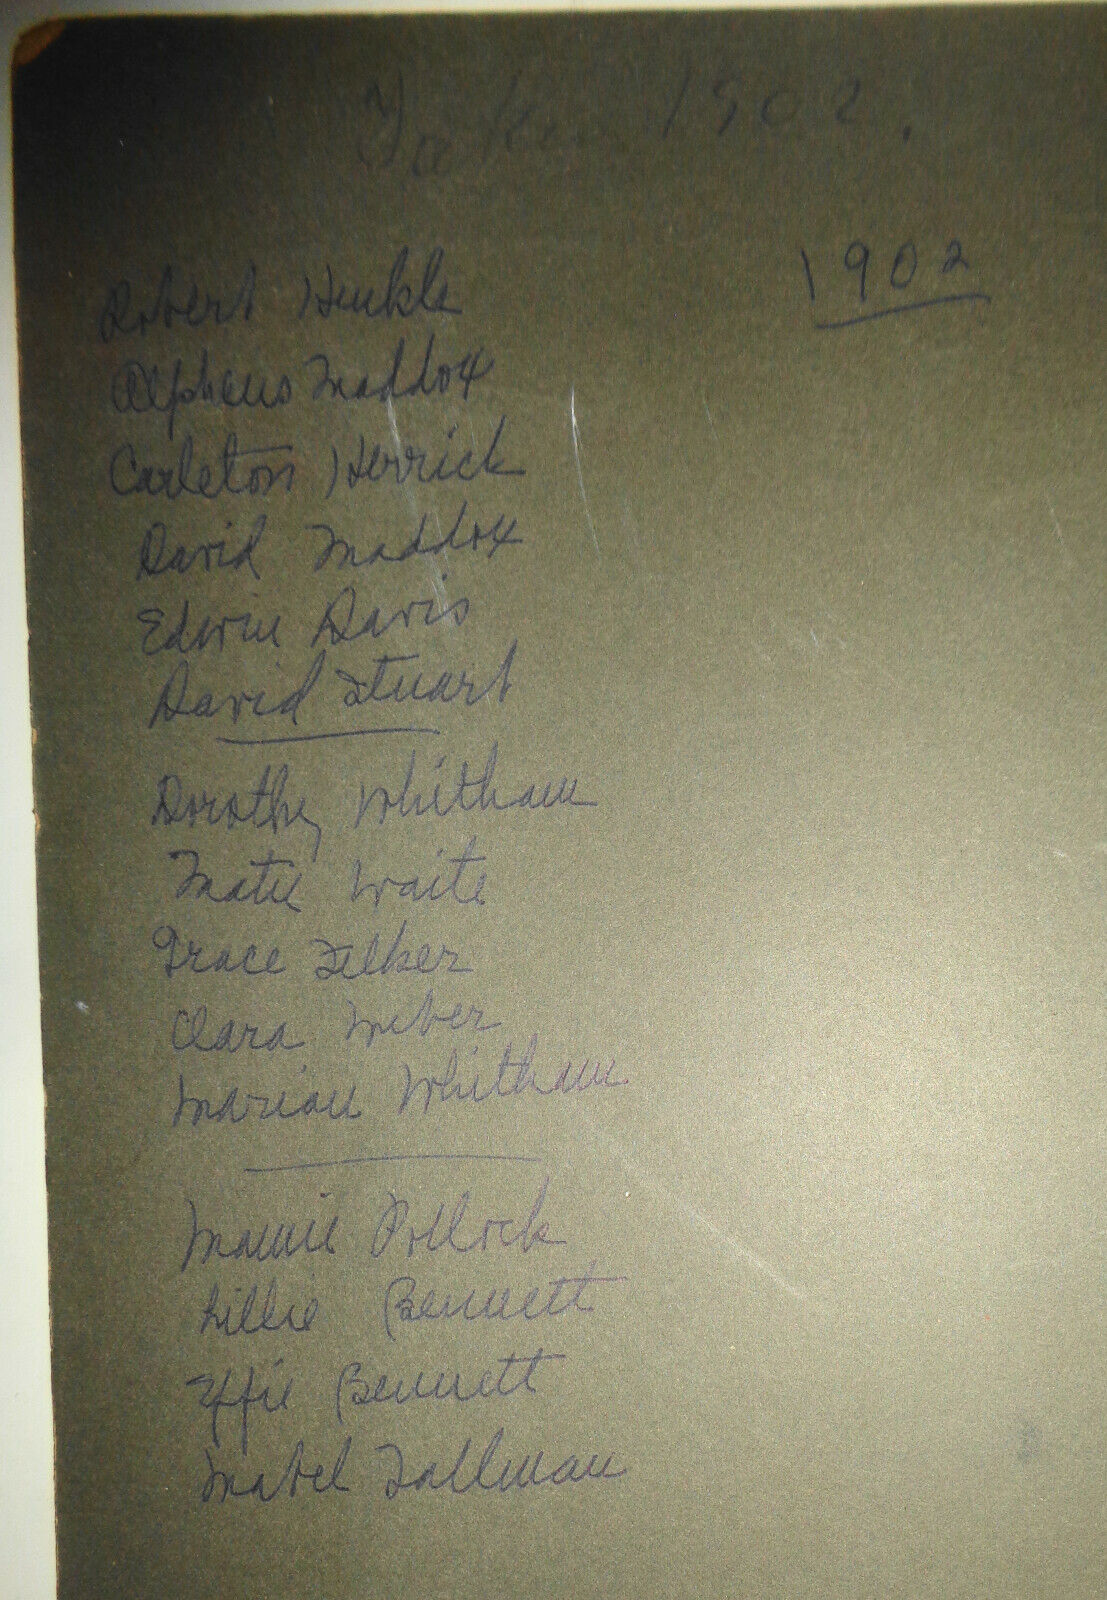 Taken 1902.
1902
Robert Hinkle
Alpheus Maddox
Carleton Herrick
David Maddox
Edwin Davis
David Stuart
Dorothy Whitham
Matie Waite
Grace Felker
Clara Weber
Marion Whitham
Mamie Pollock
Lillie Bennett
Effie Bennett
Mabel Tallman